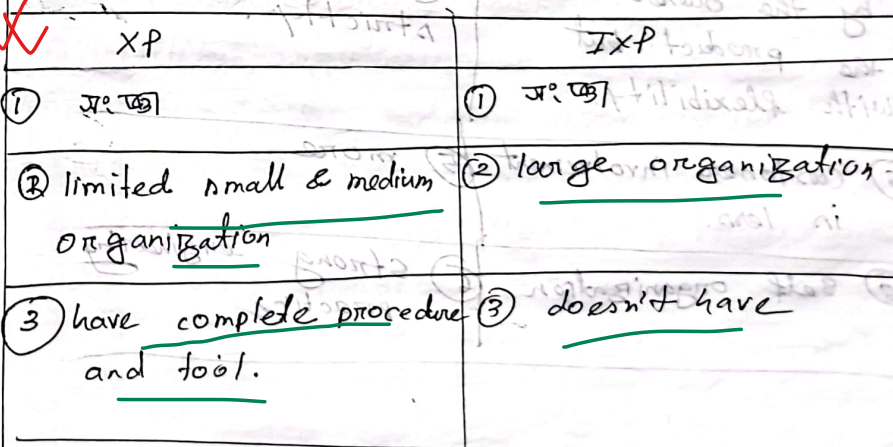 XP
IXP
① সংজ্ঞা
① সংজ্ঞা
② limited small & medium
organization
② large organization
③ have complete procedure
and tool.
③ doesn't have